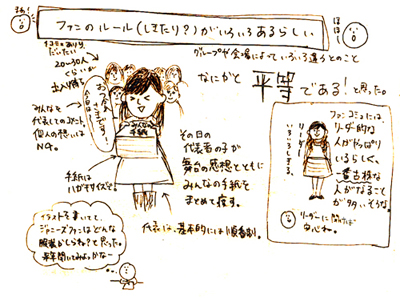 ファンのルール(しきたり?)がいろいろあるらしい
ほほほし
グループや会場によっていろいろ違うとのこと
なにかと 平等 である!と思った。
20〜30人
くらいが
出入待ち
みんなを
代表してのコメント。
個人の想いは
NG。
みんなの
手紙
手紙は
ハガキサイズ。
その日の
代表者の子が
舞台の感想とともに
みんなの手紙を
まとめて渡す。
代表は、基本的には順番制。
ファンコミュには、
リーダー的な
人がやっぱり
いるらしく、
一番古株な
人がなること
が多いそうな。
リーダー
いろいろしきる。
リーダーに聞けば
安心ね。
イラストを書いてて、
ジャニーズファンはどんな
服装がしらね?と思った。
来年聞いてみよっかなー